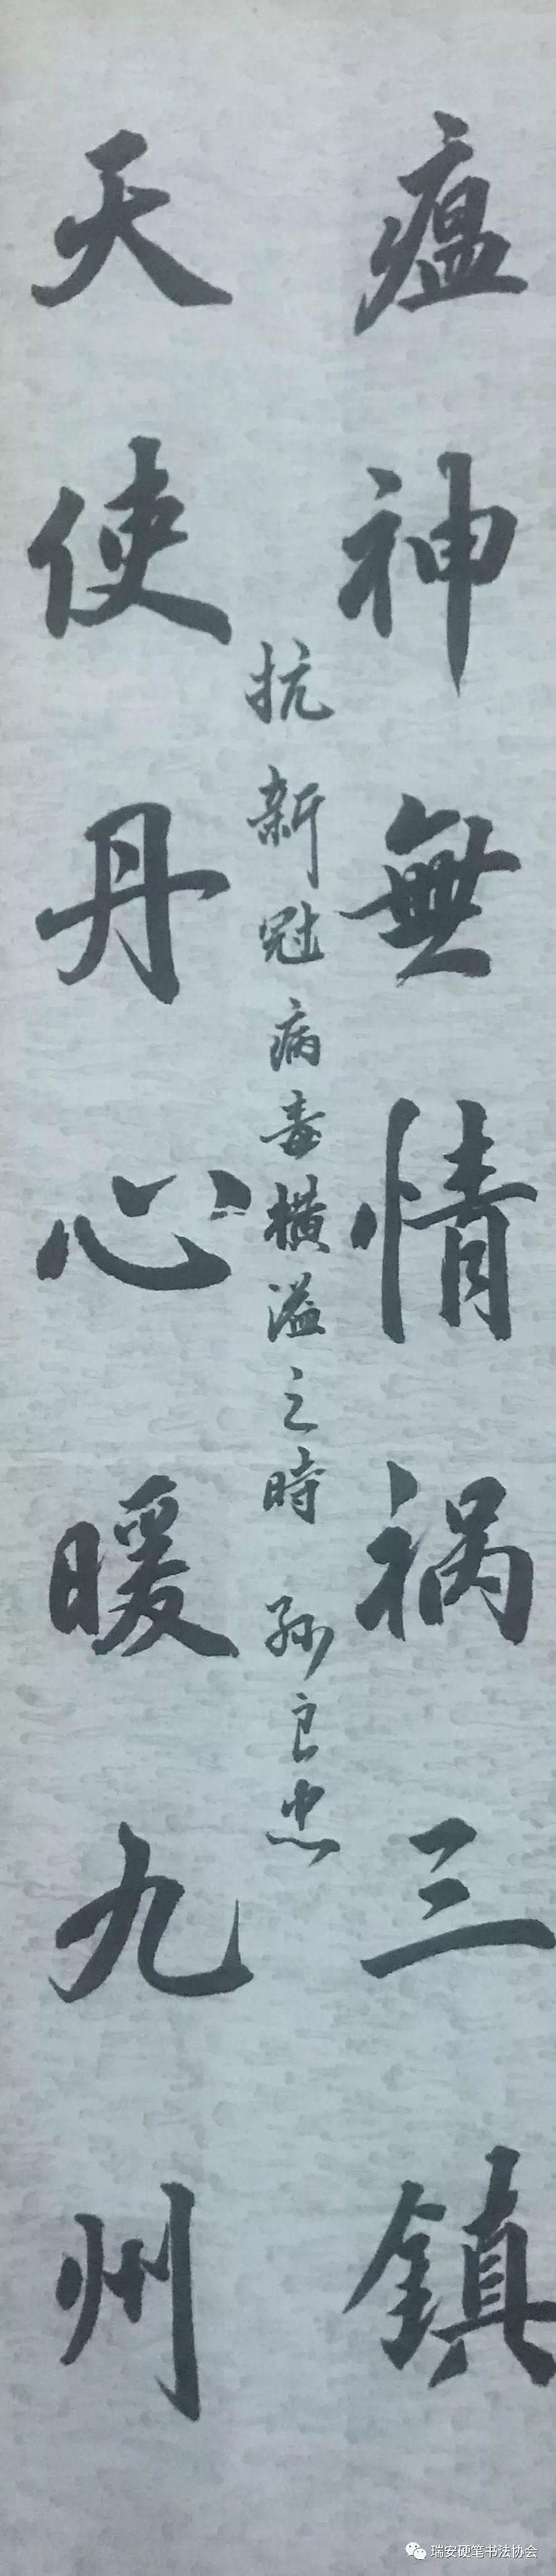 瘟神無情祸三鎮
抗新冠病毒横溢之時 孙良忠
天使丹心暖九州
瑞安硬笔书法协会